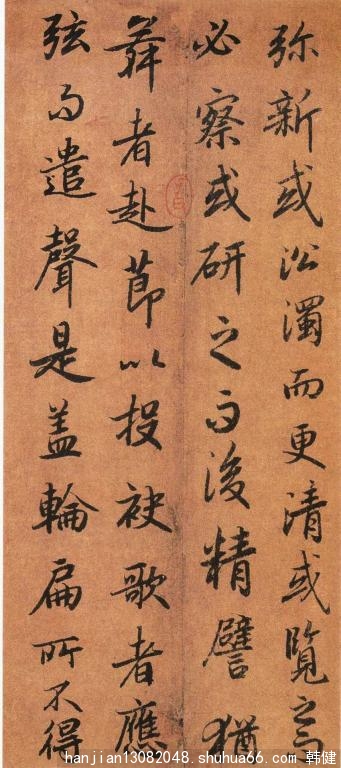 弥新或沿濁而更清或覽之而
必察或研之而後精譬猶
舞者赴節以投袂歌者應
弦而遣聲是盖輪扁所不得
hanjian13082048.shuhua66.com 韩健